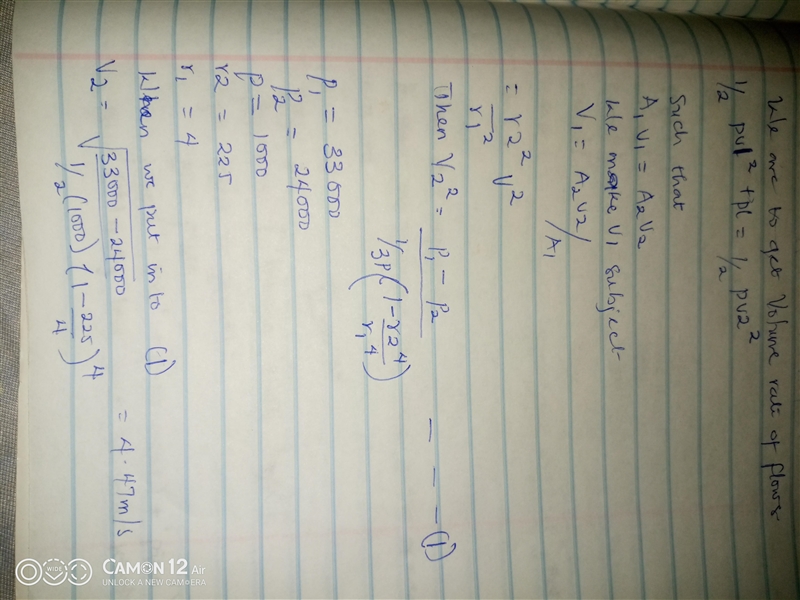 We are to get Volume rate of flows
1/2 pv1² + p1 = 1/2 pv2²
Such that
A1 v1 = A2 v2
We make v1 subject
V1 = A2 v2 / A1
= r2² v²
r1²
Then V2² = p1 - p2
1/3p (1 - r2⁴ / r1⁴) - - - (1)
p1 = 33000
p2 = 24000
p = 1000
r2 = 225
r1 = 4
When we put in to (1)
V2 = √33000 - 24000 = 4.47m/s
1/2 (1000) (1 - 225/4)⁴
CAMON 12 Air
UNLOCK A NEW CAMERA
WIDE